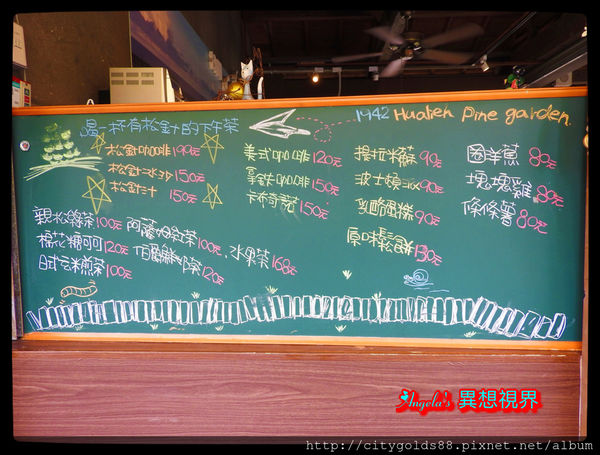 1942 Hualien Pine garden.
有松針的下午茶
松針咖啡 190元
松針冰沙 150元
松針汁 150元
美式咖啡 120元
拿鐵咖啡 150元
卡布奇諾 150元
提拉米蘇 90元
波士頓派 90元
乳酪蛋糕 90元
原味鬆餅 130元
圈洋蔥 80元
塊塊雞 80元
條條薯 80元
親松綠茶 100元
棉花糖可可 120元
日式玄米煎茶 100元
阿薩姆紅茶 100元
伯爵鮮奶茶 120元
水果茶 168元
Angela's 異想視界
http://citygolds88.pixnet.net/album